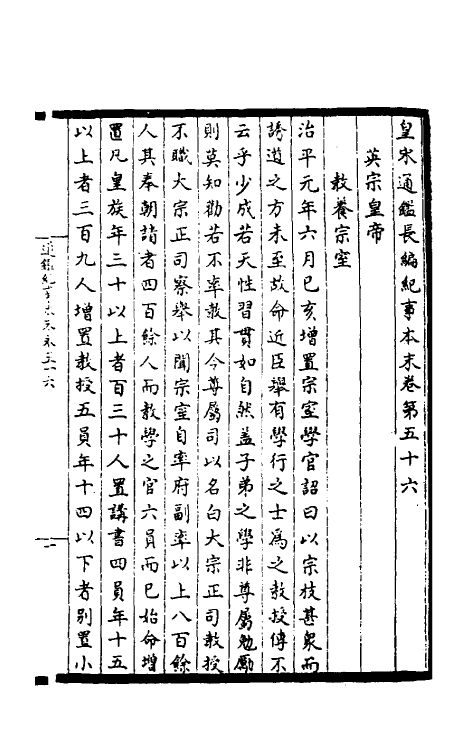 皇宋通鑑長編紀事本末卷第五十六
英宗皇帝
教養宗室
治平元年六月已亥增置宗室學官詔曰以宗枝甚衆而
誘道之方未至故命近臣舉有學行之士爲之教授傳不
云乎少成若天性習貫如自然蓋子弟之學非尊屬勉勵
則莫知勸若不率教其令尊屬司以名白大宗正司教授
不職大宗正司察舉以聞宗室自率府副率以上八百餘
人其奉朝請者四百餘人而教學之官六員而已始命增
置凡皇族年三十以上者百三十人置講書四員年十五
以上者三百九人增置教授五員年十四以下者别置小